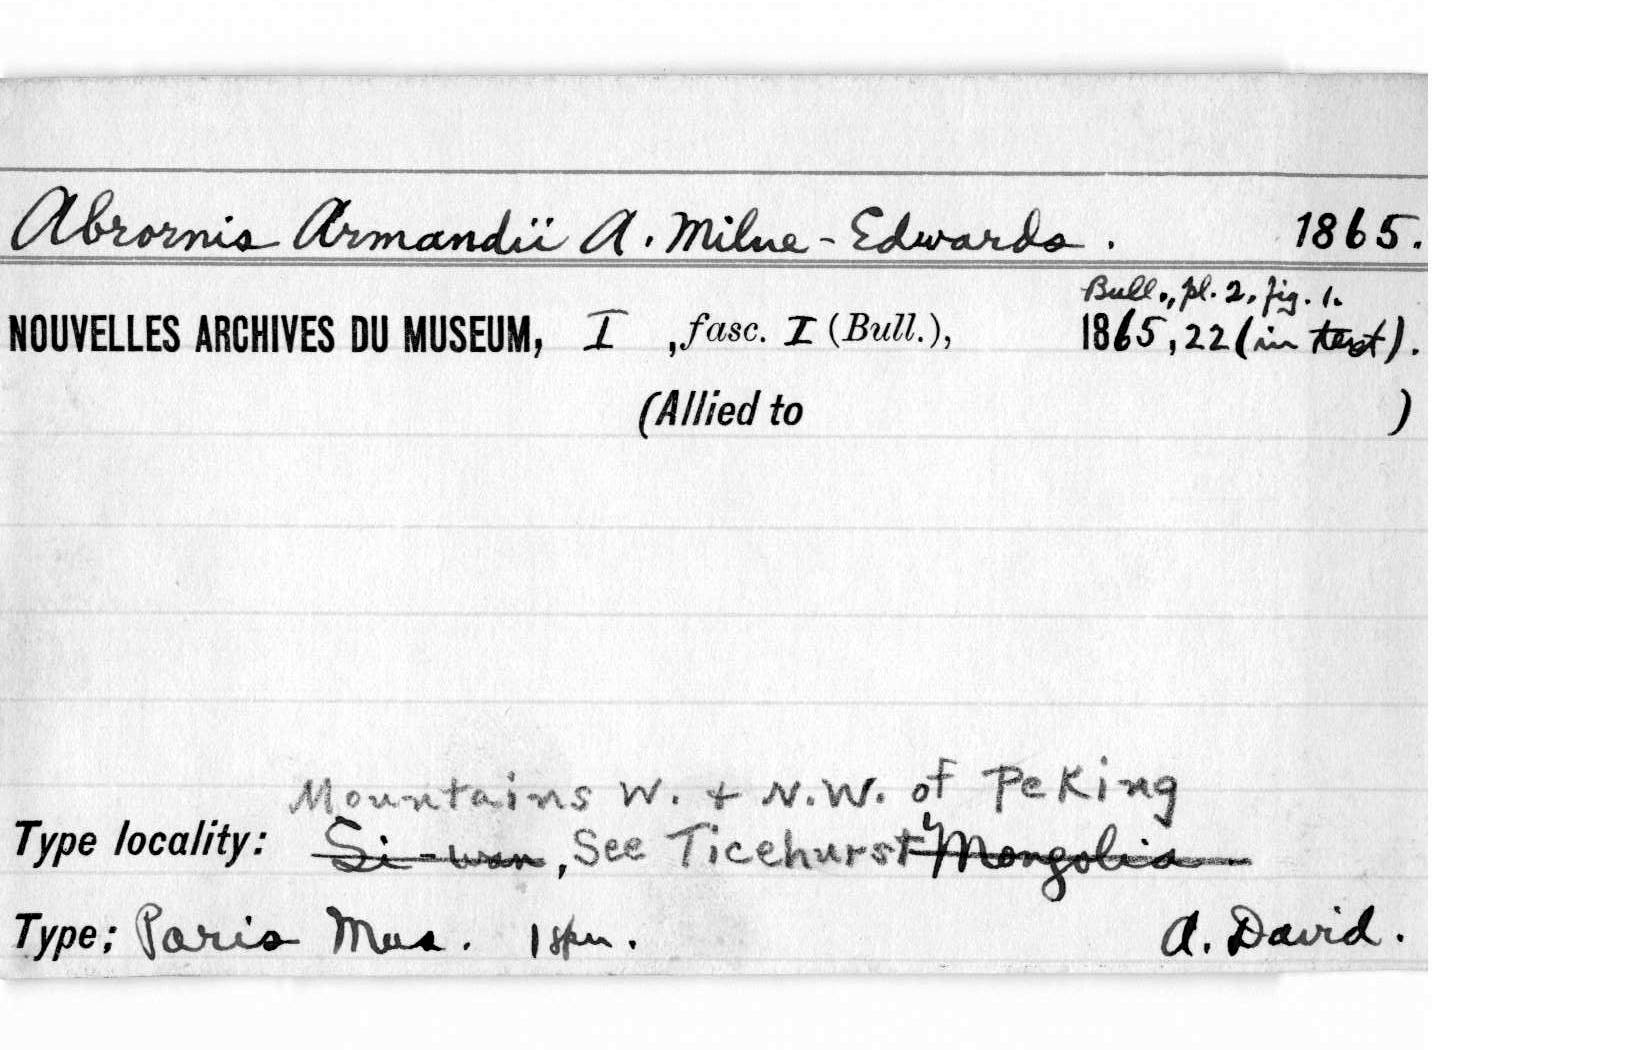 Abrornis Armandii A. Milne-Edwards. 1865.
Bull., pl. 2, fig. 1.
NOUVELLES ARCHIVES DU MUSEUM, I, fasc. I (Bull.), 1865, 22 (in text).
(Allied to )
Mountains W. + N.W. of Peking
Type locality: Si-wan, See Ticehurst Mongolia
Type; Paris Mus. 1 spm. A. David.